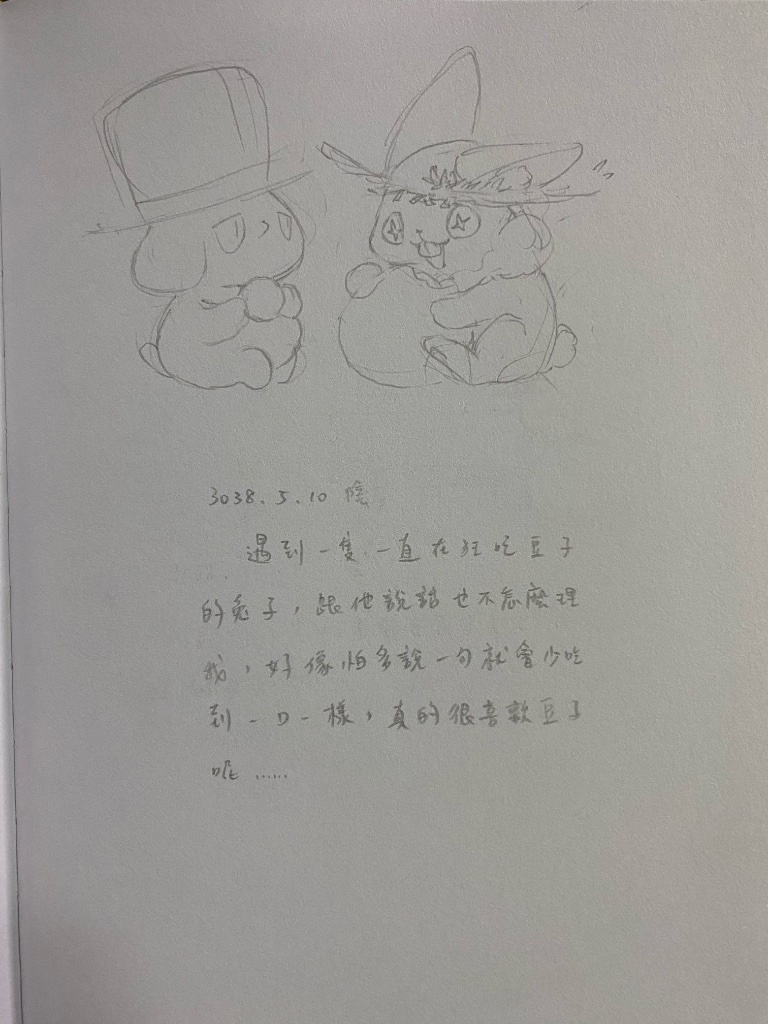 3038.5.10 陰
遇到一隻一直在狂吃豆子
的兔子，跟他說話也不怎麼理
我，好像怕多說一句就會少吃
到一口一樣，真的很喜歡豆子
呢……